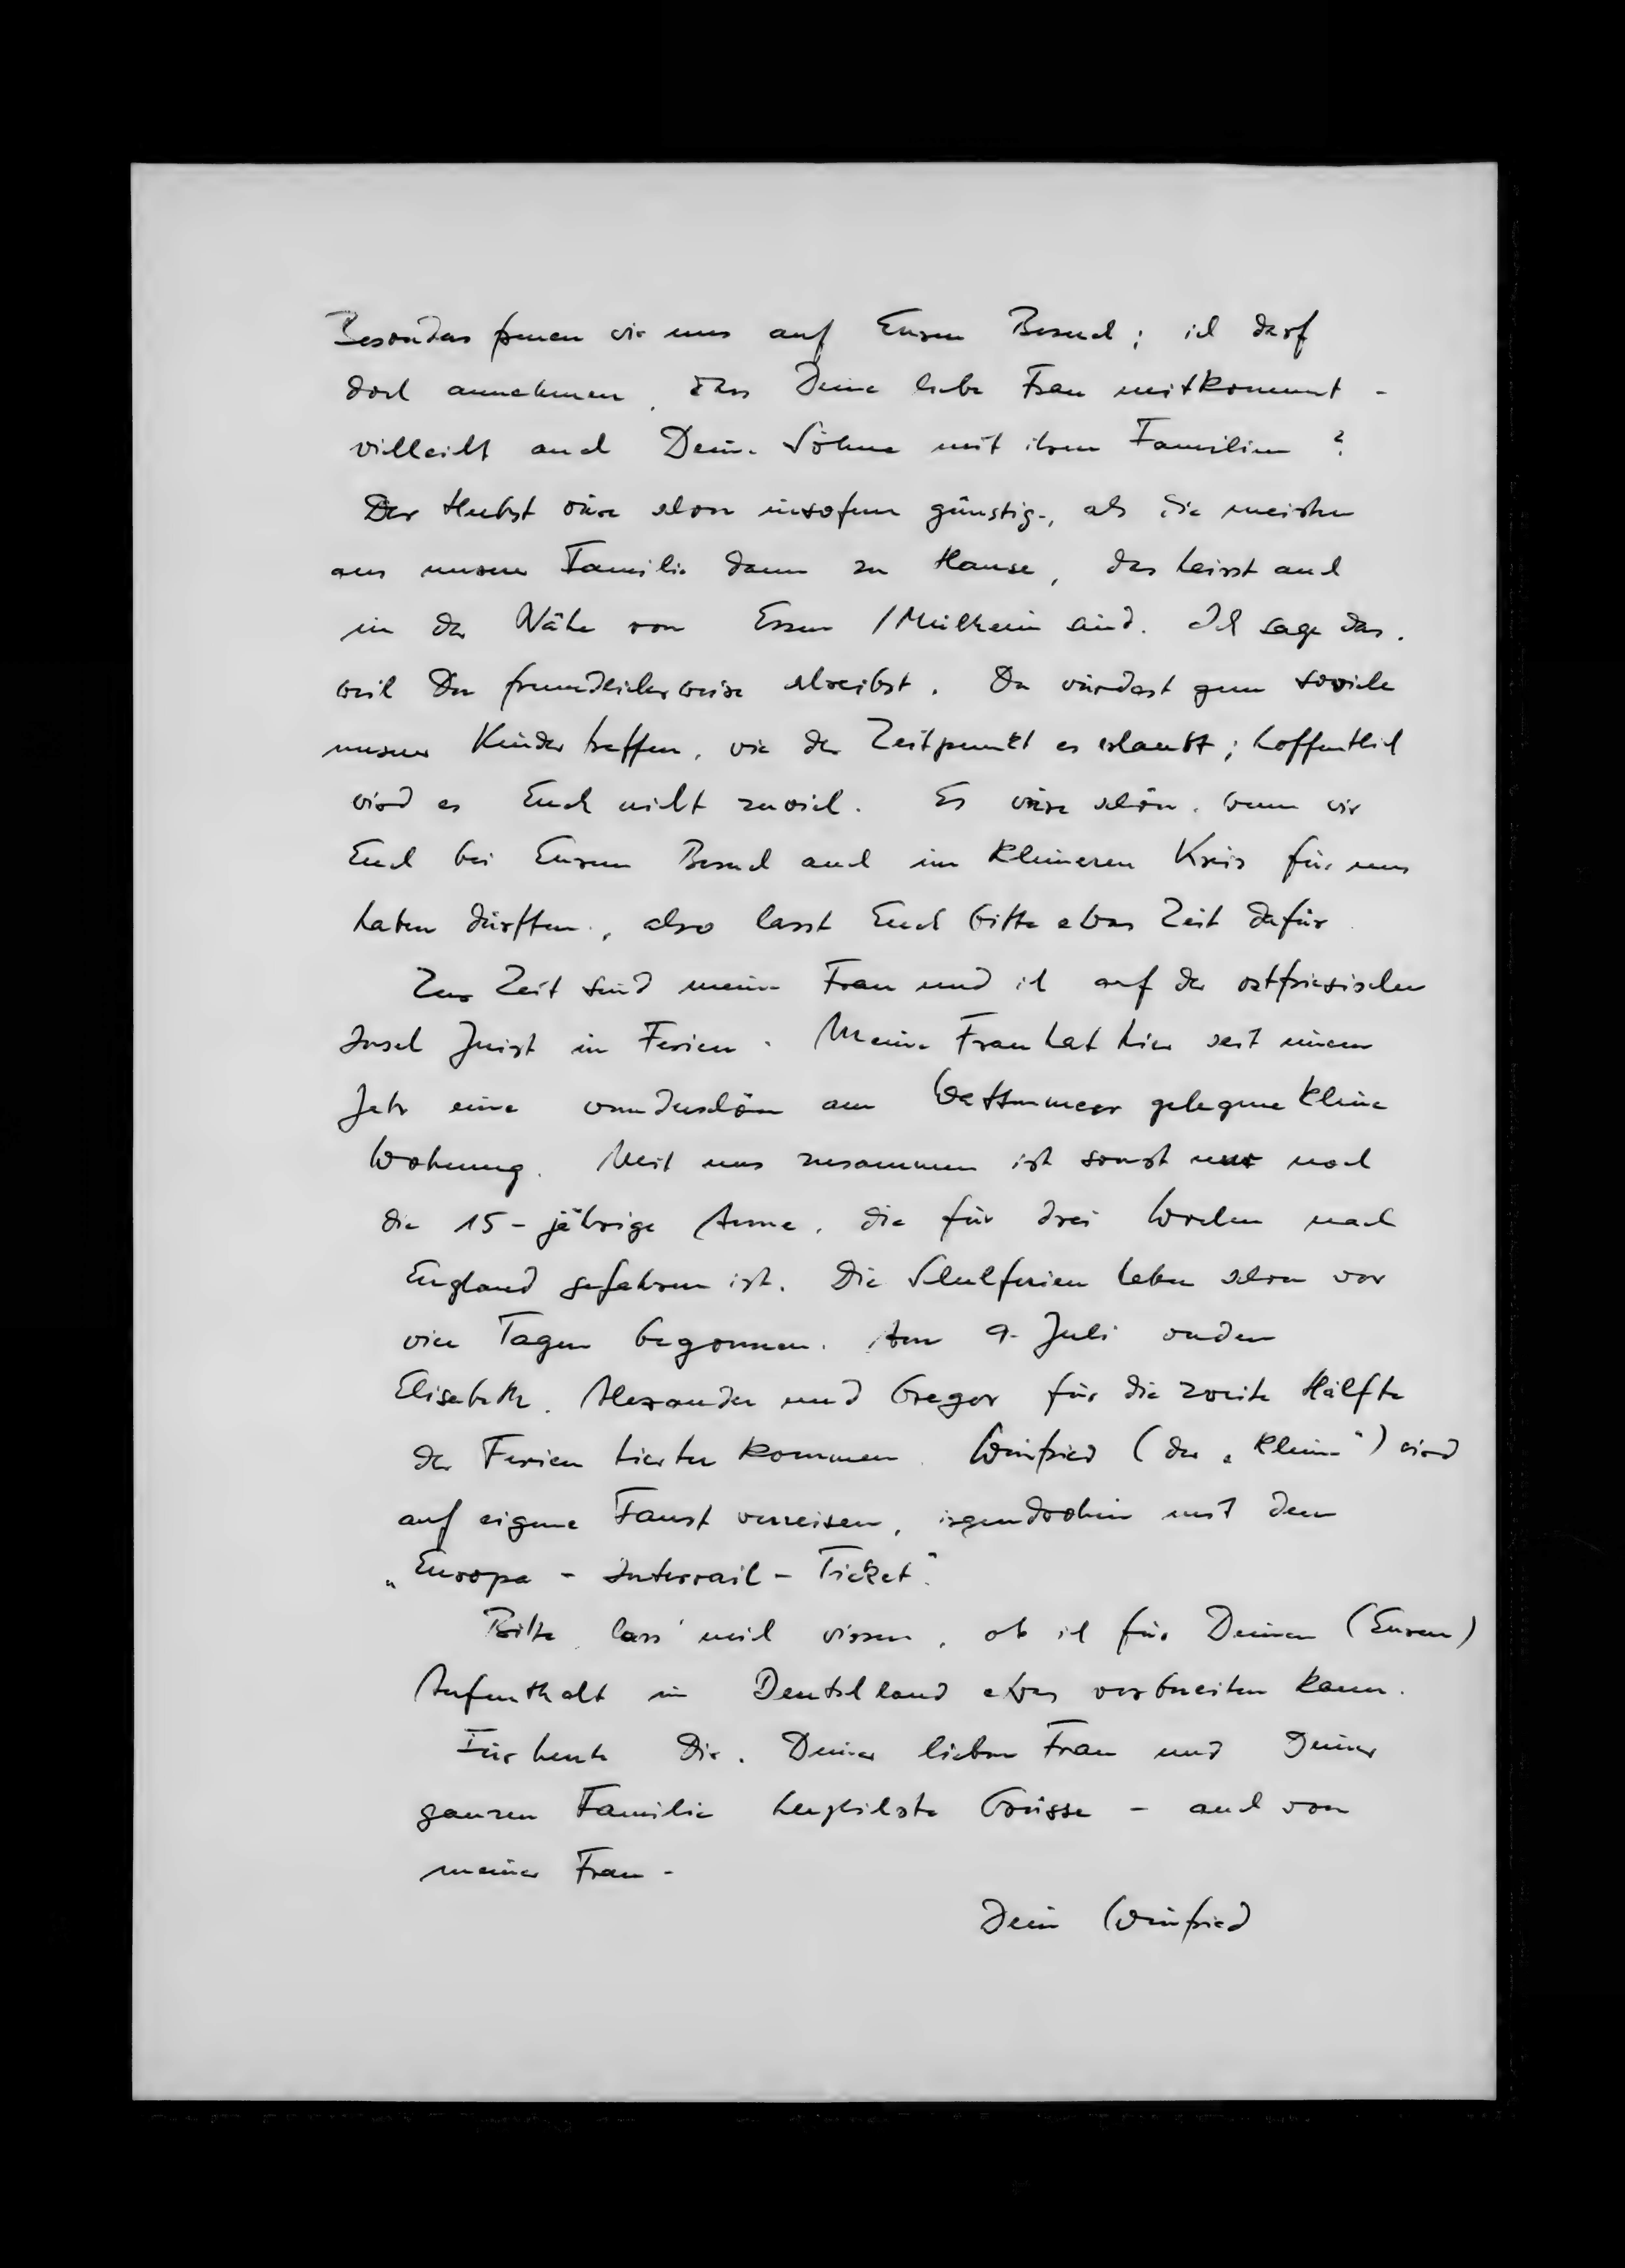 Besonders freuen wir uns auf Euren Besuch; ich darf
doch annehmen, dass Deine liebe Frau mitkommt -
vielleicht auch Deine Söhne mit ihren Familien?
Der Herbst wäre schon insofern günstig, als die meisten
aus unserer Familie dann zu Hause, das heisst auch
in der Nähe von Essen / Mülheim sind. Ich sage das,
weil Du freundlicherweise schreibst, Du würdest gern soviele
unserer Kinder treffen, wie der Zeitpunkt es erlaubt; hoffentlich
wird es Euch nicht zuviel. Es wäre schön, wenn wir
Euch bei Eurem Besuch auch im kleineren Kreis für uns
haben dürften, also lasst Euch bitte etwas Zeit dafür.
Zur Zeit sind meine Frau und ich auf der ostfriesischen
Insel Juist in Ferien. Meine Frau hat hier seit einem
Jahr eine wunderschön am Wattenmeer gelegene kleine
Wohnung. Mit uns zusammen ist sonst nur noch
die 15-jährige Anne, die für drei Wochen nach
England gefahren ist. Die Schulferien haben schon vor
vier Tagen begonnen. Am 9. Juli werden
Elisabeth, Alexander und Gregor für die zweite Hälfte
der Ferien hierher kommen. Winfried (der „Kleine") wird
auf eigene Faust verreisen, irgendwohin mit dem
„Europa - Interrail - Ticket".
Bitte, lass' mich wissen, ob ich für Deinen (Euren)
Aufenthalt in Deutschland etwas vorbereiten kann.
Für heute Dir, Deiner lieben Frau und Deiner
ganzen Familie herzlichste Grüsse - auch von
meiner Frau -
Dein Winfried